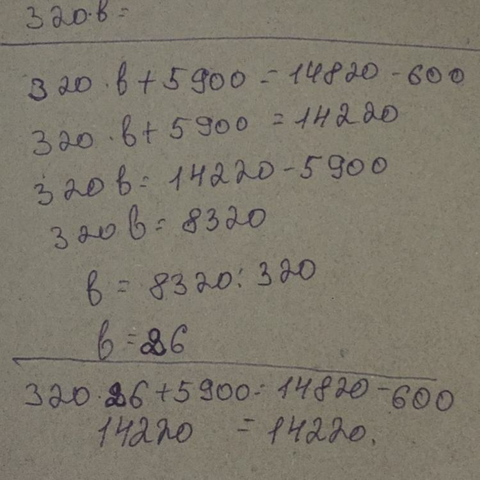 320·в=
320·в+5900=14820-600
320·в+5900=14220
320в=14220-5900
320в=8320
в=8320:320
в=26
320·26+5900=14820-600
14220=14220.